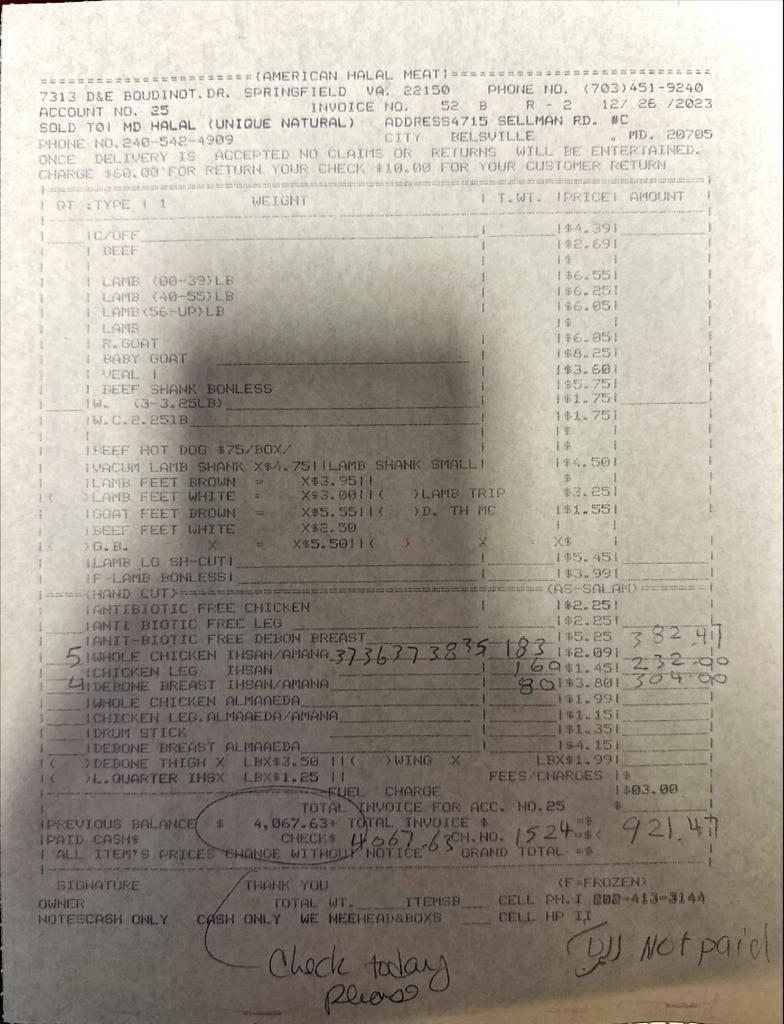 ====================(AMERICAN HALAL MEAT)====================
7313 D&E BOUDINOT.DR. SPRINGFIELD VA. 22150 PHONE NO. (703)451-9240
ACCOUNT NO. 25 INVOICE NO. 52 B R - 2 12/ 26 /2023
SOLD TO: MD HALAL (UNIQUE NATURAL) ADDRESS4715 SELLMAN RD. #C
PHONE NO.240-542-4909 CITY BELSVILLE . MD. 20705
ONCE DELIVERY IS ACCEPTED NO CLAIMS OR RETURNS WILL BE ENTERTAINED.
CHARGE $60.00 FOR RETURN YOUR CHECK $10.00 FOR YOUR CUSTOMER RETURN
| QT :TYPE | 1 WEIGHT | T.WT. |PRICE| AMOUNT
|C/OFF |$4.39|
| BEEF |$2.69|
|$ |
| LAMB (00-39)LB |$6.55|
| LAMB (40-55)LB |$6.25|
| LAMB(56-UP)LB |$6.05|
| LAMB |$ |
| R.GOAT |$6.05|
| BABY GOAT |$8.25|
| VEAL | |$3.60|
| BEEF SHANK BONLESS |$5.75|
|W. (3-3.25LB) |$1.75|
|W.C.2.251B |$1.75|
|$ |
|BEEF HOT DOG $75/BOX/ |$ |
|VACUM LAMB SHANK X$4.75||LAMB SHANK SMALL| |$4.50|
|LAMB FEET BROWN = X$3.95|| $
|( )LAMB FEET WHITE = X$3.00||( )LAMB TRIP $3.25|
|GOAT FEET BROWN = X$5.55||( )D. TH MC |$1.55|
|BEEF FEET WHITE X$2.50
|( )G.B. X = X$5.50||( ) X = X$
|LAMB LG SH-CUT| |$5.45|
|F-LAMB BONLESS| |$3.99|
(HAND CUT) (AS-SALAM)
|ANTIBIOTIC FREE CHICKEN |$2.25|
|ANTI BIOTIC FREE LEG |$2.25|
|ANIT-BIOTIC FREE DEBON BREAST |$5.25
5 |WHOLE CHICKEN IHSAN/AMANA 37 36 37 38 35 183 |$2.09| 382.47
|CHICKEN LEG IHSAN 160 |$1.45| 232.00
4 |DEBONE BREAST IHSAN/AMANA 80 |$3.80| 304.00
|WHOLE CHICKEN ALMAAEDA |$1.99|
|CHICKEN LEG.ALMAAEDA/AMANA |$1.15|
|DRUM STICK |$1.35|
|DEBONE BREAST ALMAAEDA |$4.15|
|( )DEBONE THIGH X LBX$3.50 ||( )WING X LBX$1.99|
|( )L.QUARTER IHSX LBX$1.25 || FEES/CHARGES |$
FUEL CHARGE |$03.00
TOTAL INVOICE FOR ACC. NO.25 $
|PREVIOUS BALANCE $ 4,067.63+ TOTAL INVOICE $ =$ 921.47
|PAID CASH$ CHECK$ 4067.63 CH.NO. 1524 =$(
| ALL ITEM'S PRICES CHANGE WITHOUT NOTICE GRAND TOTAL =$
SIGNATURE THANK YOU (F=FROZEN)
OWNER TOTAL WT. ITEMSB CELL PH.I 202-413-3144
NOTESCASH ONLY CASH ONLY WE NEEHEAD&BOXS CELL HP II
Not paid
Check today
please